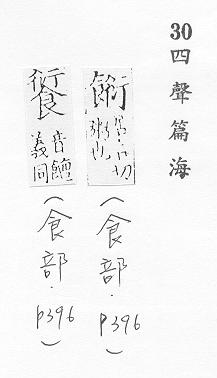 30四聲篇海
餰
切
粥也
(食部·P396)
音饘
義同
(食部·P396)